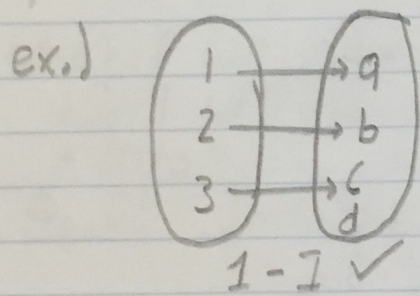 ex.)
1 → a
2 → b
3 → c
d
1-I ✓